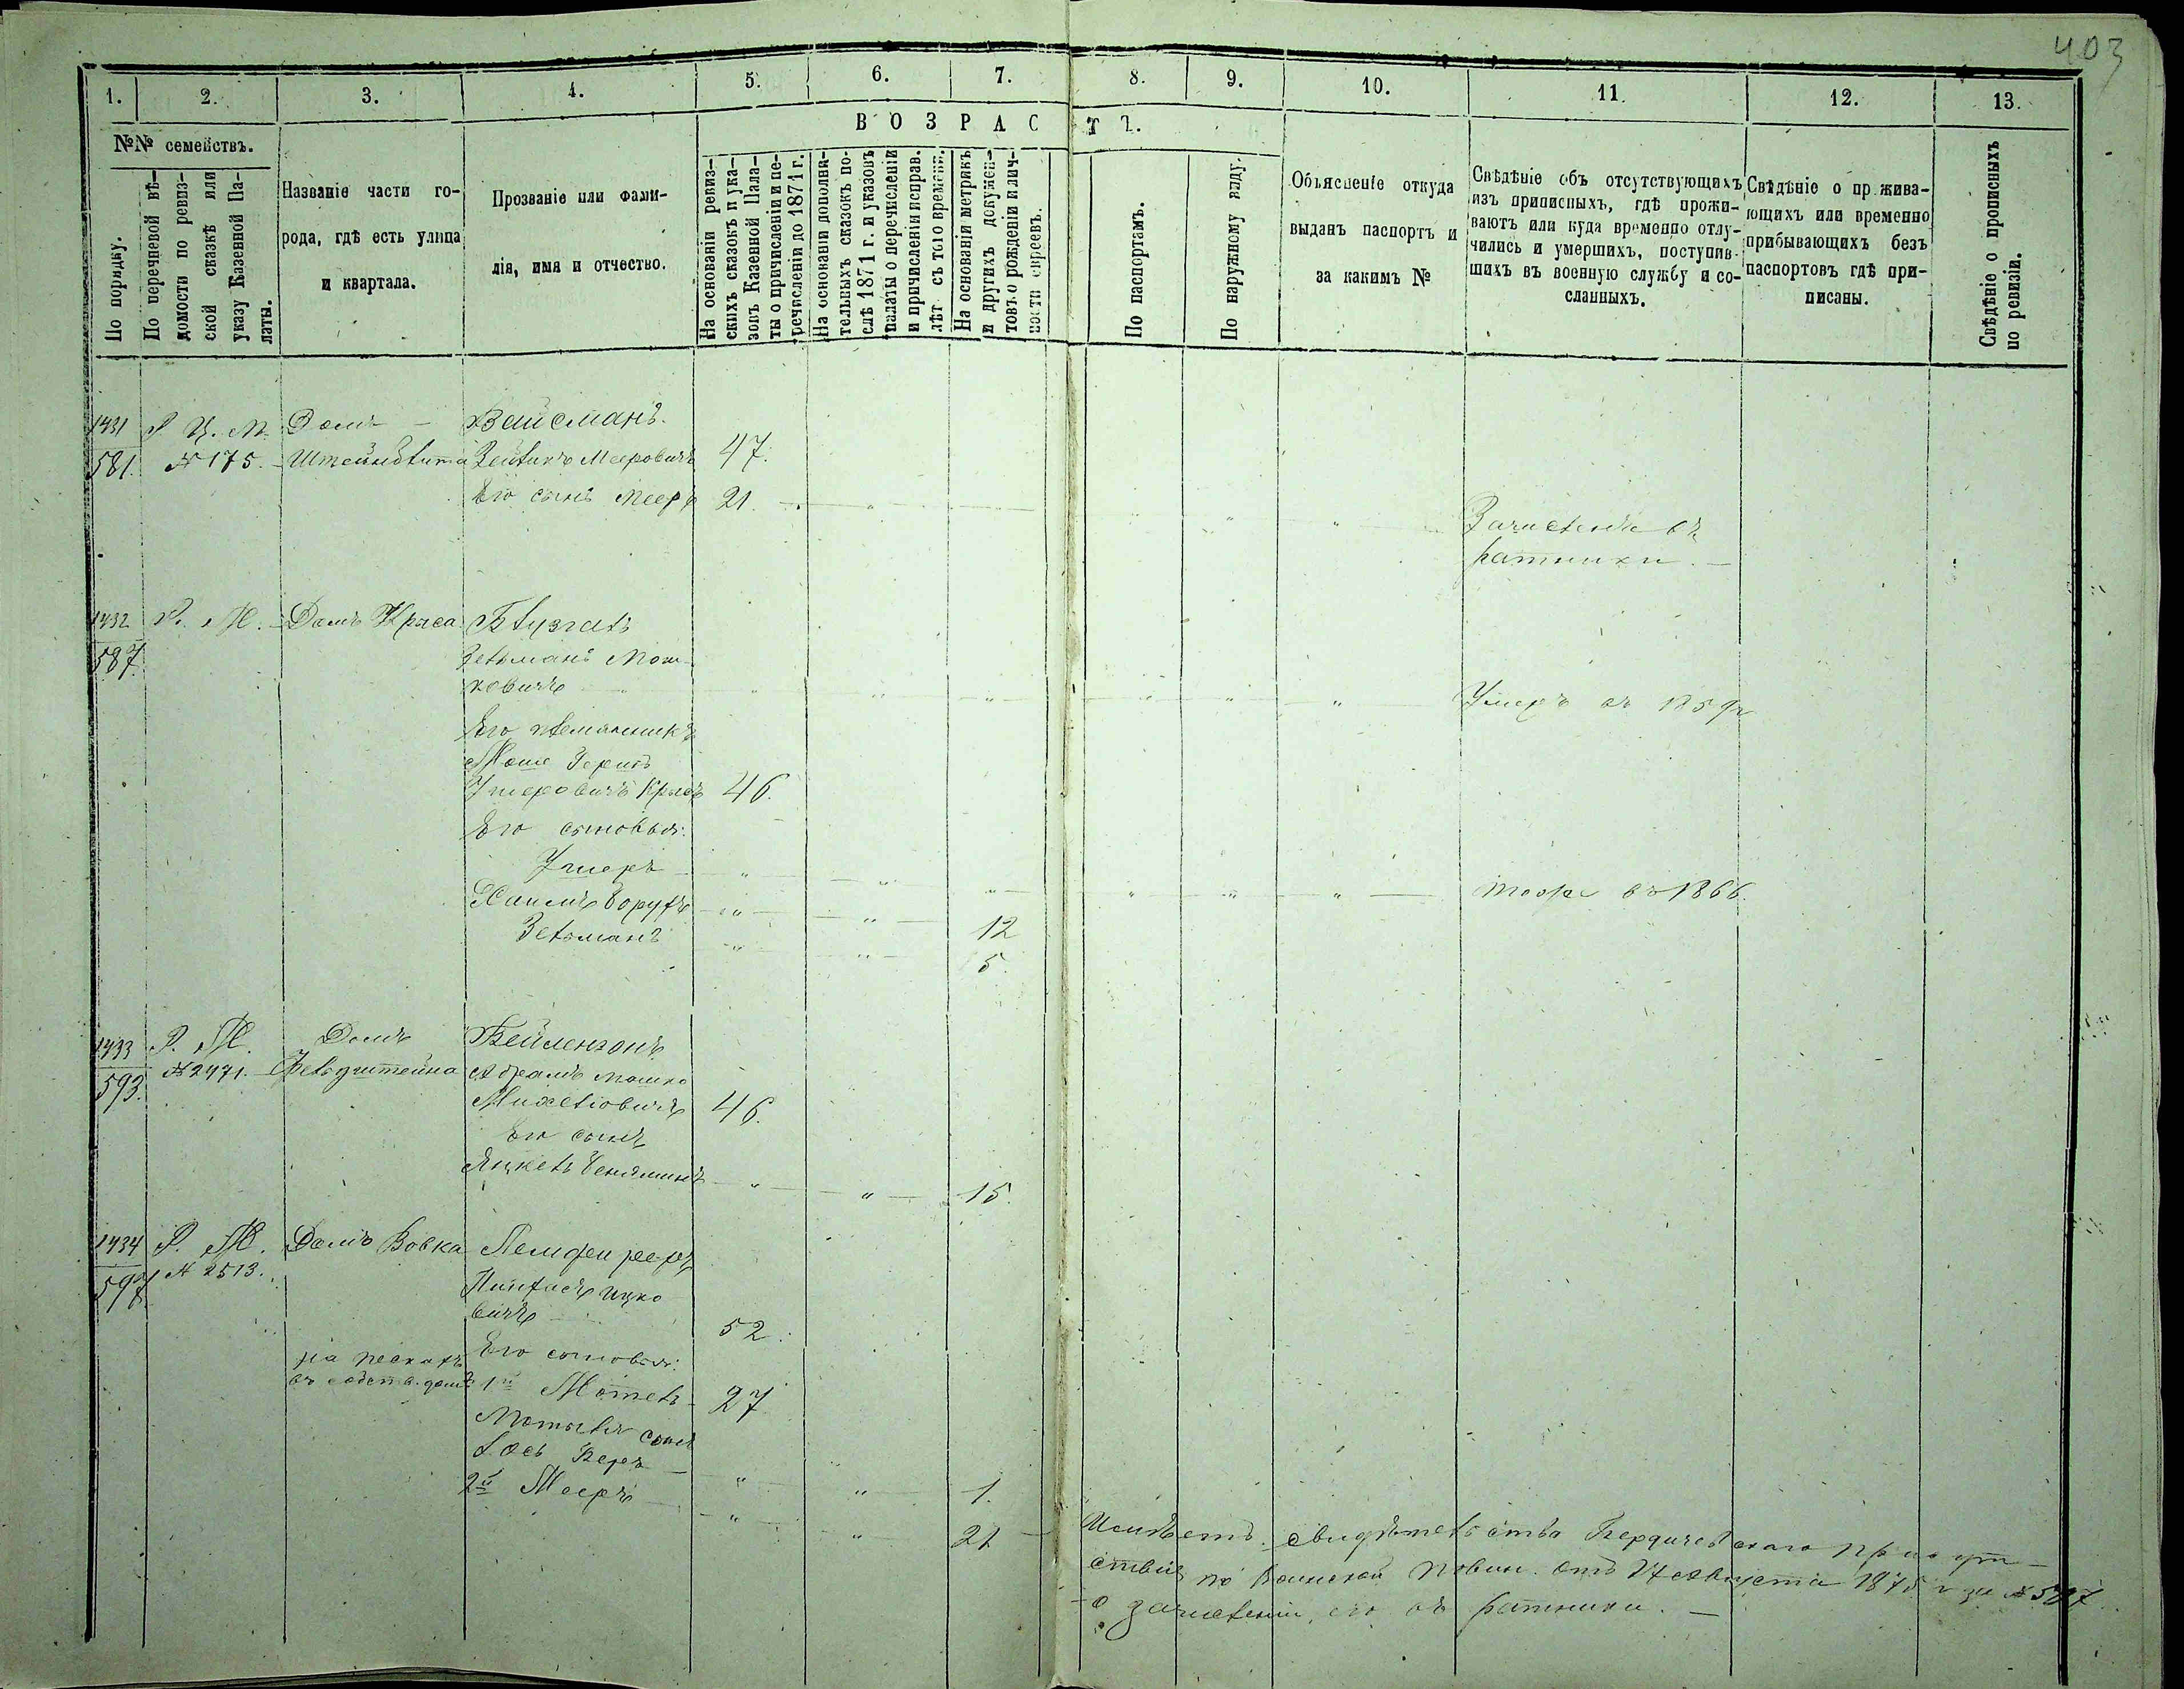 403
1. 2. 3. 4. 5. 6. 7. 8. 9. 10. 11. 12. 13.
№№ семействъ.
По порядку.
По перечневой вѣ-
домости по ревиз-
ской сказкѣ или
указу Казенной Па-
латы.
Названіе части го-
рода, гдѣ есть улица
и квартала.
Прозваніе или фами-
лія, имя и отчество.
ВОЗРАСТЪ.
На основаніи ревиз-
скихъ сказокъ и ука-
зовъ Казенной Пала-
ты о причисленіи и пе-
речисленіи до 1871 г.
На основаніи дополни-
тельныхъ сказокъ по-
слѣ 1871 г. и указовъ
палаты о перечисленіи
и причисленіи и исправ.
лѣт съ того времени.
На основаніи метрикъ
и других докумен-
товъ о рожденіи и лич-
ности евреевъ.
По паспортамъ.
По наружному виду.
Объясненіе откуда
выданъ паспортъ и
за какимъ №
Свѣдѣніе объ отсутствующихъ
изъ приписныхъ, гдѣ прожи-
ваютъ или куда временно отлу-
чились и умершихъ, поступив-
шихъ въ военную службу и со-
сланныхъ.
Свѣдѣніе о прожива-
ющихъ или временно
прибывающихъ безъ
паспортовъ гдѣ при-
писаны.
Свѣдѣніе о прописныхъ
по ревизіи.
1431 Р. Ц. М. Домъ Вайсманъ.
581. № 175. Зейликъ Мееровичъ 47.
Его сынъ Мееръ 21. Зачисленъ въ
ратники.
1432 Р. М. Домъ Краса
587. Зельманъ Мош-
ковичъ Умеръ въ 1859 г.
Его племянникъ
Моше Герш
Ушеровичъ Красъ 46.
Его сыновья:
Ушеръ тоже въ 1866.
Хаимъ Борухъ 12
Зельманъ 5.
1433 Р. М. Домъ Бейленсонъ
593. № 2471. Фельдштейна Абрамъ Мошко
Михелiовичъ 46.
Его сынъ
Янкель Бенямин 15.
1434 Р. М. Домъ Вовка
597. № 2513. Пинхасъ Ицко-
вичъ 52.
Его сыновья:
на пескахъ
въ собств. домѣ 1й Мотель 27
Мотеля сынъ
Іось Беръ 1.
2й Мееръ 21
Имѣетъ свидѣтельство Бердичевскаго присут-
ствія по Воинской повин. отъ 24 Августа 1875 г за № 587
о зачисленіи его въ ратники.